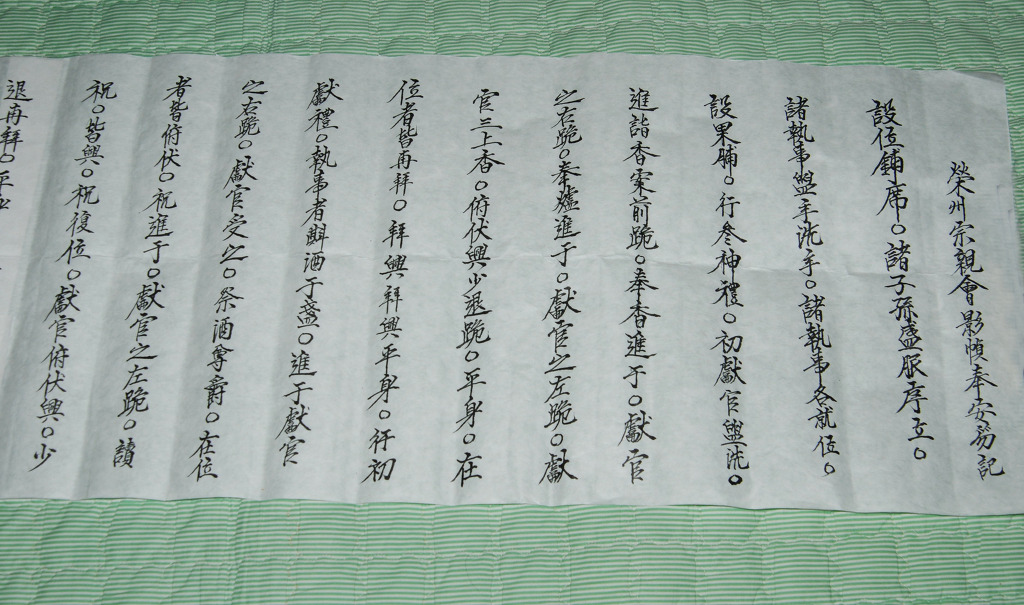 榮州宗親會影幀奉安笏記
設位鋪席○諸子孫盛服序立○
諸執事盥手洗手○諸執事各就位○
設果脯○行參神禮○初獻官盥洗○
進詣香案前跪○奉香進于○獻官
之右跪○奉爐進于○獻官之左跪○獻
官三上香○俯伏興少退跪○平身○在
位者皆再拜○拜興拜興平身○行初
獻禮○執事者斟酒于盞○進于獻官
之右跪○獻官受之○祭酒奠爵○在位
者皆俯伏○祝進于○獻官之左跪○讀
祝○皆興○祝復位○獻官俯伏興○少
退再拜○平